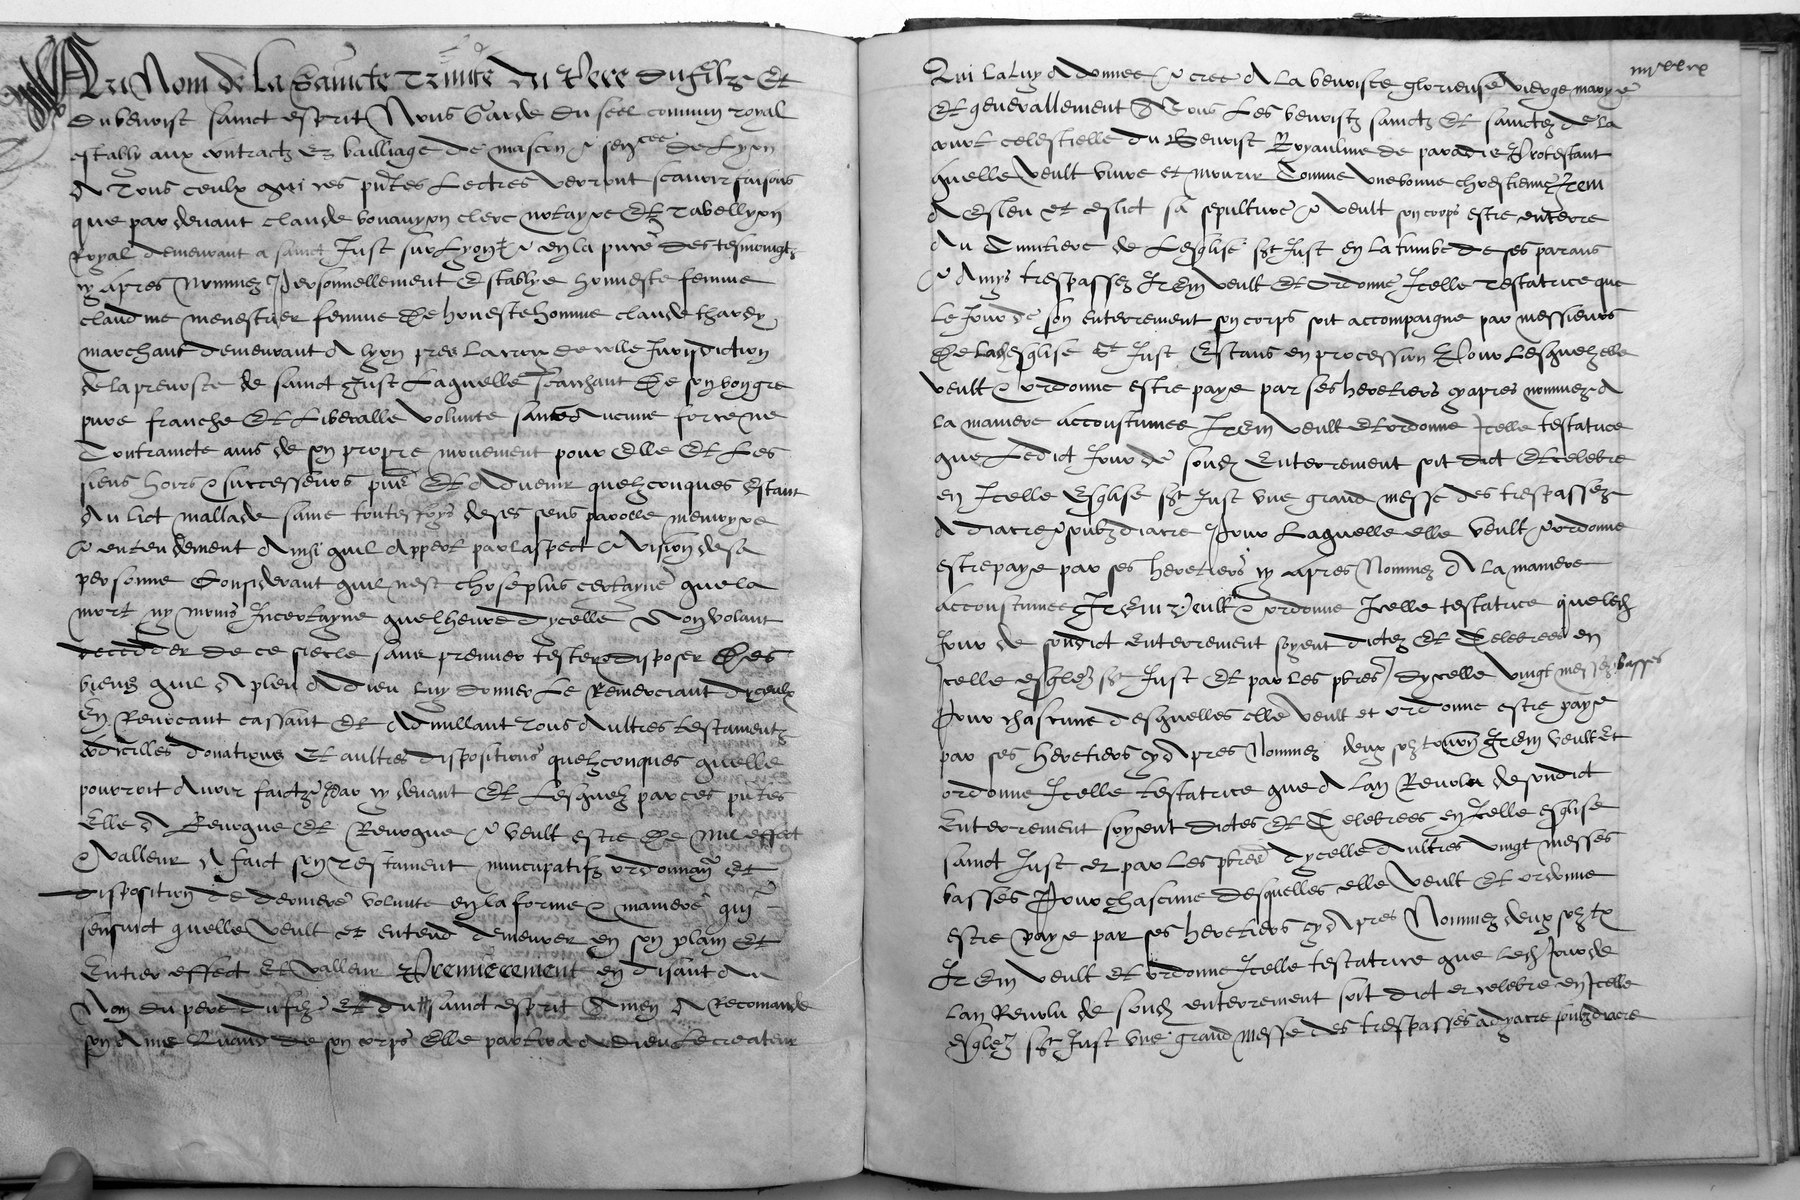 Au Nom de la Saincte Trinite du Pere du filz Et
du benoist sainct esprit Nous Garde du seel commun royal
estably aux contractz ez bailliage de mascon & senesce de Lyon
A Tous ceulx qui ces pntes Lectres verront scavoir faisons
que par devant claude bonauyron clerc notayre Et Tabellyon
Royal demeurant a sainct Just sur Lyon & en la pnce des tesmoingtz
cy apres Nommez Personnellement Establye honneste femme
claudine menestrier femme De honeste homme claude thardy
marchant demeurant A lyon pres la croix de colle Jurisdiction
de la prevoste de sainct Just Laquelle Saichant De son bon gre
pure franche Et Liberalle volunte sans Aucune force ne
Contraincte ains de son propre mouvement pour Elle Et Les
siens hoirs & successeurs pns Et Advenir quelzconques Estant
Au lict mallade saine toutesfoys de ses sens parolle memoyre
& entendement Ainsi quil Appert par laspect & vision de sa
personne Considerant quil nest chose plus certayne que la
mort ny moins Incertayne que lheure dycelle Non volant
decedder de ce siecle sans premier tester & disposer Des
biens quil A pleu A dieu luy donner Le Remerciant dyceulx
En Revocant cassant Et Adnullant Tous Aultres testamentz
codicilles donations Et aultres dispositions quelzconques quelle
pourroit Avoir faictz Par cy devant Et Lesquelz par ces pntes
Elle A Revoque Et Revoque & veult estre De Nul effect
& valleur A faict son Testament nuncupatifz ordonnan Et
disposition de derniere volunte en la forme & maniere qui
sensuict quelle Veult et entend demeurer en son plain Et
Entier effect Et valleur Premierement en disant Au
Nom du pere du filz Et du sainct esprit Amen A Recomande
son Ame Quand de son corps Elle partira A dieu Le createur
iiiixx xix
Qui La luy A donnee & cree A La benoiste glorieuse vierge marye
Et generallement A Tous Les benoistz sainctz Et sainctes de la
court celestielle du Benoist Royaulme de paradis Protestant
quelle Veult vivre et mourir Comme une bonne chrestienne Item
A Esleu et eslict sa sepulture & veult son corps estre enterre
Au Cimitiere de Lesglise Sct Just en La tumbe de ses parans
& Amys trespassez Item veult Et Ordonne Icelle Testatrice que
Le Jour de son enterrement son corps soit accompaigne par messieurs
De Lad esglise St Just Estans en procession Pour Lesquelz elle
veult & ordonne estre paye par ses heretiers cy apres nommez A
La maniere accoustumee Item veult Et ordonne Icelle testatrice
que Ledict Jour de sond Enterrement soit dict Et celebre
en Icelle Esglise Sct Just Une grand messe des trespassez
A diacre & soubz diacre Pour Laquelle elle Veult & ordonne
estre paye par ses heretiers cy apres Nommez A La maniere
accoustumee Item veult & ordonne Icelle testatrice que led
Jour de sondict enterrement soyent dictes Et Celebrees en
Icelle esglez Sct Just Et par les pbres dycelle vingt messes basses
Pour chascune desquelles elle Veult et ordonne estre paye
par ses heretiers cy Apres Nommez deux solz tourn Item Veult Et
ordonne Icelle testatrice que A Lan Revolu de sondict
Enterrement soyent dictes Et Celebrees en Icelle esglise
sainct Just et par Les pbres dycelle Aultres vingt messes
basses Pour chascune desquelles elle Veult Et ordonne
estre paye par ses heretiers cy Apres Nommez deux solz tz
Item veult Et Ordonne Icelle testatrice que Led Jour de
Lan Revolu de sond enterrement soit dict et celebre en Icelle
esglez Sct Just une grand messe des trespasses a dyacre soubzdiacre